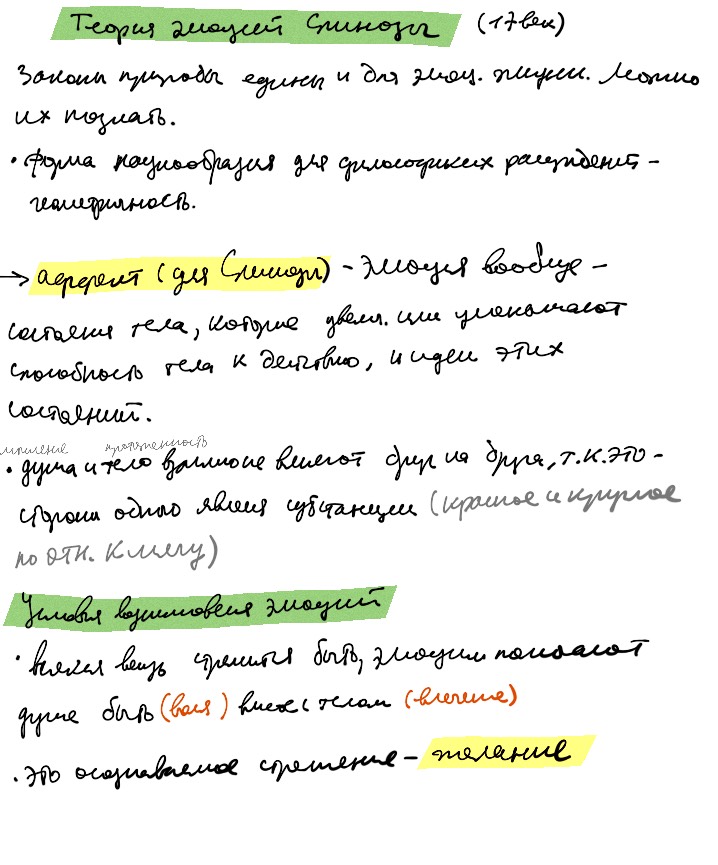 Теория эмоций Спинозы (17 век)
Законы природы едины и для эмоц. жизни. Можно
их познать.
• Форма наукообразия для философских рассуждений –
геометричность.
→ аффект (для Спинозы) – эмоция вообще –
состояния тела, которые увелич. или уменьшают
способность тела к действию, и идеи этих
состояний.
мышление протяженность
• душа и тело взаимно не влияют друг на друга, т.к. это –
стороны одного явления субстанции (красное и круглое
по отн. к мячу)
Условия возникновения эмоций
• всякая вещь стремится быть, эмоции помогают
душе быть (воля) вместе с телом (влечение)
• это осознаваемое стремление – желание